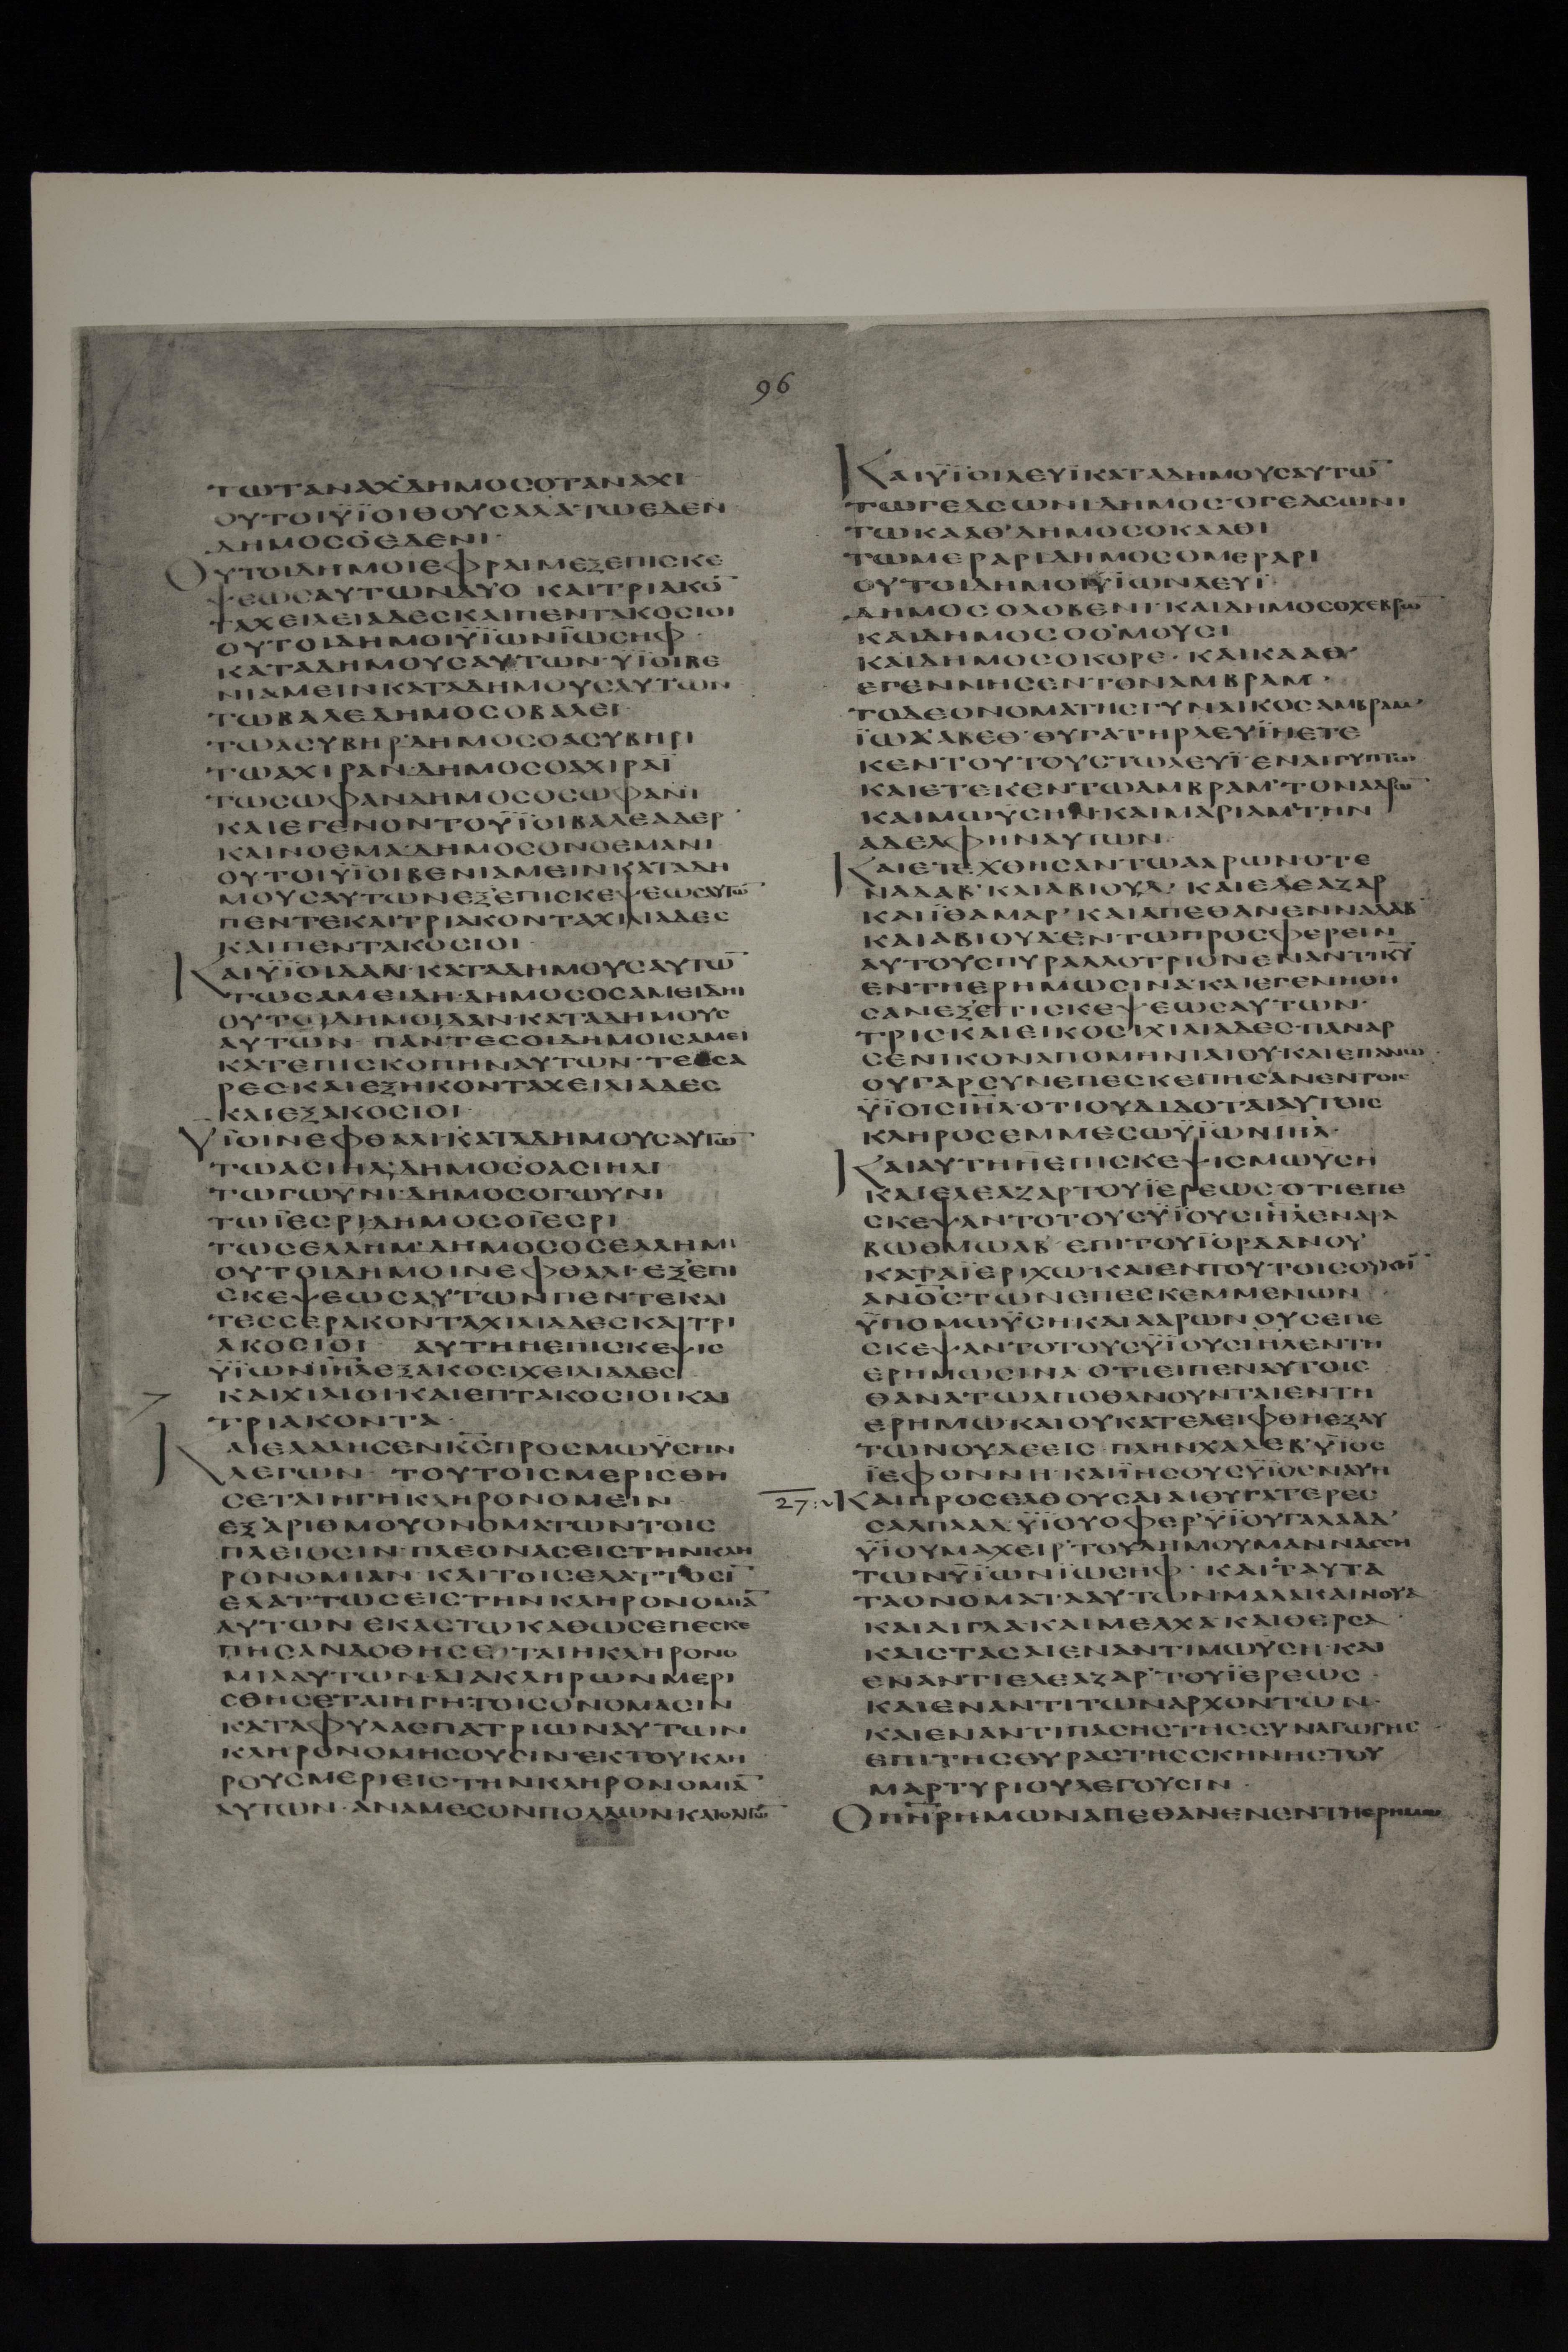 96
ΤΩΤΑΝΑΧΔΗΜΟCΟΤΑΝΑΧΙ
ΟΥΤΟΙΫΪΟΙΘΟΥCΑΛΑ·ΤΩΕΔΕΝ
ΔΗΜΟCΟΕΔΕΝΙ·
ΟΥΤΟΙΔΗΜΟΙΕΦΡΑΙΜΕΞΕΠΙCΚΕ
ΨΕΩCΑΥΤΩΝΔΥΟ ΚΑΙΤΡΙΑΚΟ̅
ΤΑΧΕΙΛΕΙΑΔΕCΚΑΙΠΕΝΤΑΚΟCΙΟΙ
ΟΥΤΟΙΔΗΜΟΙΫΪΩΝΪΩCΗΦ·
ΚΑΤΑΔΗΜΟΥCΑΥΤΩΝ·ΫΪΟΙΒΕ
ΝΙΑΜΕΙΝΚΑΤΑΔΗΜΟΥCΑΥΤΩΝ
ΤΩΒΑΛΕΔΗΜΟCΟΒΑΛΕΙ·
ΤΩΑCΥΒΗΡ·ΔΗΜΟCΟΑCΥΒΗΡΙ
ΤΩΑΧΙΡΑΝ·ΔΗΜΟCΟΑΧΙΡΑΪ
ΤΩCΩΦΑΝΔΗΜΟCΟCΩΦΑΝΙ
ΚΑΙΕΓΕΝΟΝΤΟΥΪΟΙΒΑΛΕΑΔΕΡ
ΚΑΙΝΟΕΜΑ·ΔΗΜΟCΟΝΟΕΜΑΝΙ
ΟΥΤΟΙΫΪΟΙΒΕΝΙΑΜΕΙΝΚΑΤΑΔΗ
ΜΟΥCΑΥΤΩΝΕΞΕΠΙCΚΕΨΕΩCΑΥΤΩ̅
ΠΕΝΤΕΚΑΙΤΡΙΑΚΟΝΤΑΧΙΛΙΑΔΕC
ΚΑΙΠΕΝΤΑΚΟCΙΟΙ·
ΚΑΙΫΪΟΙΔΑΝ·ΚΑΤΑΔΗΜΟΥCΑΥΤΩ̅
ΤΩCΑΜΕΙΔΗ·ΔΗΜΟCΟCΑΜΕΙΔΗΙ
ΟΥΤΟΙΔΗΜΟΙΔΑΝ·ΚΑΤΑΔΗΜΟΥC
ΑΥΤΩΝ· ΠΑΝΤΕCΟΙΔΗΜΟΙCΑΜΕΙ
ΚΑΤΕΠΙCΚΟΠΗΝΑΥΤΩΝ·ΤΕCCΑ
ΡΕCΚΑΙΕΞΗΚΟΝΤΑΧΕΙΛΙΑΔΕC
ΚΑΙΕΞΑΚΟCΙΟΙ·
ΥΪΟΙΝΕΦΘΑΛΙ·ΚΑΤΑΔΗΜΟΥCΑΥΤΩ̅
ΤΩΑCΙΗΛ·ΔΗΜΟCΟΑCΙΗΛΙ
ΤΩΓΩΥΝΙ·ΔΗΜΟCΟΓΩΥΝΙ
ΤΩΪΕCΡΙ·ΔΗΜΟCΟΪΕCΡΙ
ΤΩCΕΛΛΗΜ·ΔΗΜΟCΟCΕΛΛΗΜΙ
ΟΥΤΟΙΔΗΜΟΙΝΕΦΘΑΛΙ·ΕΞΕΠΙ
CΚΕΨΕΩCΑΥΤΩΝΠΕΝΤΕΚΑΙ
ΤΕCCΕΡΑΚΟΝΤΑΧΙΛΙΑΔΕCΚΑΙΤΡΙ
ΑΚΟCΙΟΙ ΑΥΤΗΗΕΠΙCΚΕΨΙC
ΫΪΩΝΙ̅Η̅Λ̅ΕΞΑΚΟCΙΧΕΙΛΙΑΔΕC
ΚΑΙΧΙΛΙΟΙ·ΚΑΙΕΠΤΑΚΟCΙΟΙΚΑΙ
ΤΡΙΑΚΟΝΤΑ·
ΚΑΙΕΛΑΛΗCΕΝΚ̅C̅ΠΡΟCΜΩΫCΗΝ
ΛΕΓΩΝ· ΤΟΥΤΟΙCΜΕΡΙCΘΗ
CΕΤΑΙΗΓΗΚΛΗΡΟΝΟΜΕΙΝ·
ΕΞΑΡΙΘΜΟΥΟΝΟΜΑΤΩΝΤΟΙC
ΠΛΕΙΟCΙΝ·ΠΛΕΟΝΑCΕΙCΤΗΝΚΛΗ
ΡΟΝΟΜΙΑΝ·ΚΑΙΤΟΙCΕΛΑΤΤΟCΙ̅
ΕΛΑΤΤΩCΕΙCΤΗΝΚΛΗΡΟΝΟΜΙΑ̅
ΑΥΤΩΝ·ΕΚΑCΤΩΚΑΘΩCΕΠΕCΚΕ
ΠΗCΑΝΔΟΘΗCΕΤΑΙΗΚΛΗΡΟΝΟ
ΜΙΑΑΥΤΩΝ·ΔΙΑΚΛΗΡΩΝΜΕΡΙ
CΘΗCΕΤΑΙΗΓΗ·ΤΟΙCΟΝΟΜΑCΙΝ
ΚΑΤΑΦΥΛΑCΠΑΤΡΙΩΝΑΥΤΩΝ
ΚΛΗΡΟΝΟΜΗCΟΥCΙΝ·ΕΚΤΟΥΚΛΗ
ΡΟΥCΜΕΡΙΕΙCΤΗΝΚΛΗΡΟΝΟΜΙΑ̅
ΑΥΤΩΝ·ΑΝΑΜΕCΟΝΠΟΛΛΩΝΚΑΙΟΛΙΓΩ̅
ΚΑΙΫΪΟΙΛΕΥΪΚΑΤΑΔΗΜΟΥCΑΥΤΩ̅
ΤΩΓΕΔCΩΝΙ·ΔΗΜΟC·ΟΓΕΔCΩΝΙ
ΤΩΚΑΑΘ·ΔΗΜΟCΟΚΑΑΘΙ
ΤΩΜΕΡΑΡΙΔΗΜΟCΟΜΕΡΑΡΙ
ΟΥΤΟΙΔΗΜΟΙΫΪΩΝΛΕΥΪ·
ΔΗΜΟCΟΛΟΒΕΝΙ·ΚΑΙΔΗΜΟCΟΧΕΒΡΩ̅
ΚΑΙΔΗΜΟCΟΟΜΟΥCΙ
ΚΑΙΔΗΜΟCΟΚΟΡΕ·ΚΑΙΚΑΑΘ
ΕΓΕΝΝΗCΕΝ·ΤΟΝΑΜΒΡΑΜ·
ΤΟΔΕΟΝΟΜΑΤΗCΓΥΝΑΙΚΟCΑΜΒΡΑΜ
ΪΩΧΑΒΕΘ·ΘΥΓΑΤΗΡΛΕΥΪΗΕΤΕ
ΚΕΝΤΟΥΤΟΥCΤΩΛΕΥΪ·ΕΝΑΙΓΥΠΤΩ
ΚΑΙΕΤΕΚΕΝΤΩΑΜΒΡΑΜ·ΤΟΝΑΑΡΩ̅
ΚΑΙΜΩΥCΗΝΚΑΙΜΑΡΙΑΜΤΗΝ
ΑΔΕΛΦΗΝΑΥΤΩΝ·
ΚΑΙΕΤΕΧΘΗCΑΝΤΩΑΑΡΩΝΟΤΕ
ΝΑΔΑΒ·ΚΑΙΑΒΙΟΥΔ· ΚΑΙΕΛΕΑΖΑΡ
ΚΑΙΪΘΑΜΑΡ·ΚΑΙΑΠΕΘΑΝΕΝΝΑΔΑΒ
ΚΑΙΑΒΙΟΥΔ·ΕΝΤΩΠΡΟCΦΕΡΕΙΝ
ΑΥΤΟΥCΠΥΡΑΛΛΟΤΡΙΟΝΕΝΑΝΤΙΚ̅Υ̅
ΕΝΤΗΕΡΗΜΩCΙΝΑ·ΚΑΙΕΓΕΝΗΘΗ
CΑΝΕΞΕΠΙCΚΕΨΕΩCΑΥΤΩΝ·
ΤΡΙCΚΑΙΕΙΚΟCΙΧΙΛΙΑΔΕC·ΠΑΝΑΡ
CΕΝΙΚΟΝΑΠΟΜΗΝΙΑΙΟΥ·ΚΑΙΕΠΑΝΩ
ΟΥΓΑΡCΥΝΕΠΕCΚΕΠΗCΑΝΕΝΤΟΙC
ΫΪΟΙCΙ̅Η̅Λ̅·ΟΤΙΟΥΔΙΔΟΤΑΙΑΥΤΟΙC
ΚΛΗΡΟCΕΜΜΕCΩΫΪΩΝΙ̅Η̅Λ̅·
ΚΑΙΑΥΤΗΗΕΠΙCΚΕΨΙCΜΩΥCΗ
ΚΑΙΕΛΕΑΖΑΡΤΟΥΪΕΡΕΩC·ΟΤΙΕΠΕ
CΚΕΨΑΝΤΟΤΟΥCΫΪΟΥCΙ̅Η̅Λ̅ΕΝΑΡΑ
ΒΩΘΜΩΑΒ·ΕΠΙΤΟΥΪΟΡΔΑΝΟΥ
ΚΑΤΑΪΕΡΙΧΩ·ΚΑΙΕΝΤΟΥΤΟΙCΟΥΚΗ̅
ΑΝ̅Ο̅C̅ΤΩΝΕΠΕCΚΕΜΜΕΝΩΝ
ΫΠΟΜΩΫCΗ·ΚΑΙΑΑΡΩΝΟΥCΕΠΕ
CΚΕΨΑΝΤΟΤΟΥCΫΪΟΥCΙ̅Η̅Λ̅ΕΝΤΗ
ΕΡΗΜΩCΙΝΑ·ΟΤΙΕΙΠΕΝΑΥΤΟΙC
ΘΑΝΑΤΩΑΠΟΘΑΝΟΥΝΤΑΙΕΝΤΗ
ΕΡΗΜΩ·ΚΑΙΟΥΚΑΤΕΛΕΙΦΘΗΕΞΑΥ
ΤΩΝΟΥΔΕΕΙC·ΠΛΗΝΧΑΛΕΒ·ΫΪΟC
ΪΕΦΟΝΝΗ·ΚΑΙΪΗCΟΥCΫΪΟCΝΑΥΗ
27: ΚΑΙΠΡΟCΕΛΘΟΥCΑΙΑΙΘΥΓΑΤΕΡΕC
CΑΛΠΑΑΔ·ΫΪΟΥΟΦΕΡ·ΫΪΟΥΓΑΛΑΑΔ
ΫΪΟΥΜΑΧΕΙΡ·ΤΟΥΔΗΜΟΥΜΑΝΝΑCCΗ
ΤΩΝΫΪΩΝΪΩCΗΦ· ΚΑΙΤΑΥΤΑ
ΤΑΟΝΟΜΑΤΑΑΥΤΩΝ·ΜΑΛΑΚΑΙΝΟΥΑ
ΚΑΙΑΙΓΛΑ·ΚΑΙΜΕΛΧΑ·ΚΑΙΘΕΡCΑ·
ΚΑΙCΤΑCΑΙΕΝΑΝΤΙΜΩΥCΗ·ΚΑΙ
ΕΝΑΝΤΙΕΛΕΑΖΑΡ·ΤΟΥΪΕΡΕΩC·
ΚΑΙΕΝΑΝΤΙΤΩΝΑΡΧΟΝΤΩΝ·
ΚΑΙΕΝΑΝΤΙΠΑCΗCΤΗCCΥΝΑΓΩΓΗC
ΕΠΙΤΗCΘΥΡΑCΤΗCCΚΗΝΗCΤΟΥ
ΜΑΡΤΥΡΙΟΥΛΕΓΟΥCΙΝ·
ΟΠ̅Η̅Ρ̅ΗΜΩΝΑΠΕΘΑΝΕΝΕΝΤΗΕΡΗΜΩ